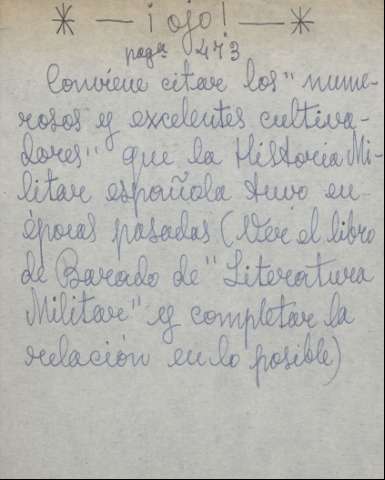 * — ¡ojo! — *
pag.ª 473
Conviene citar los "nume-
rosos y excelentes cultiva-
dores" que la Historia Mi-
litar española tuvo en
épocas pasadas (Ver el libro
de Barado de "Literatura
Militar" y completar la
relación en lo posible)